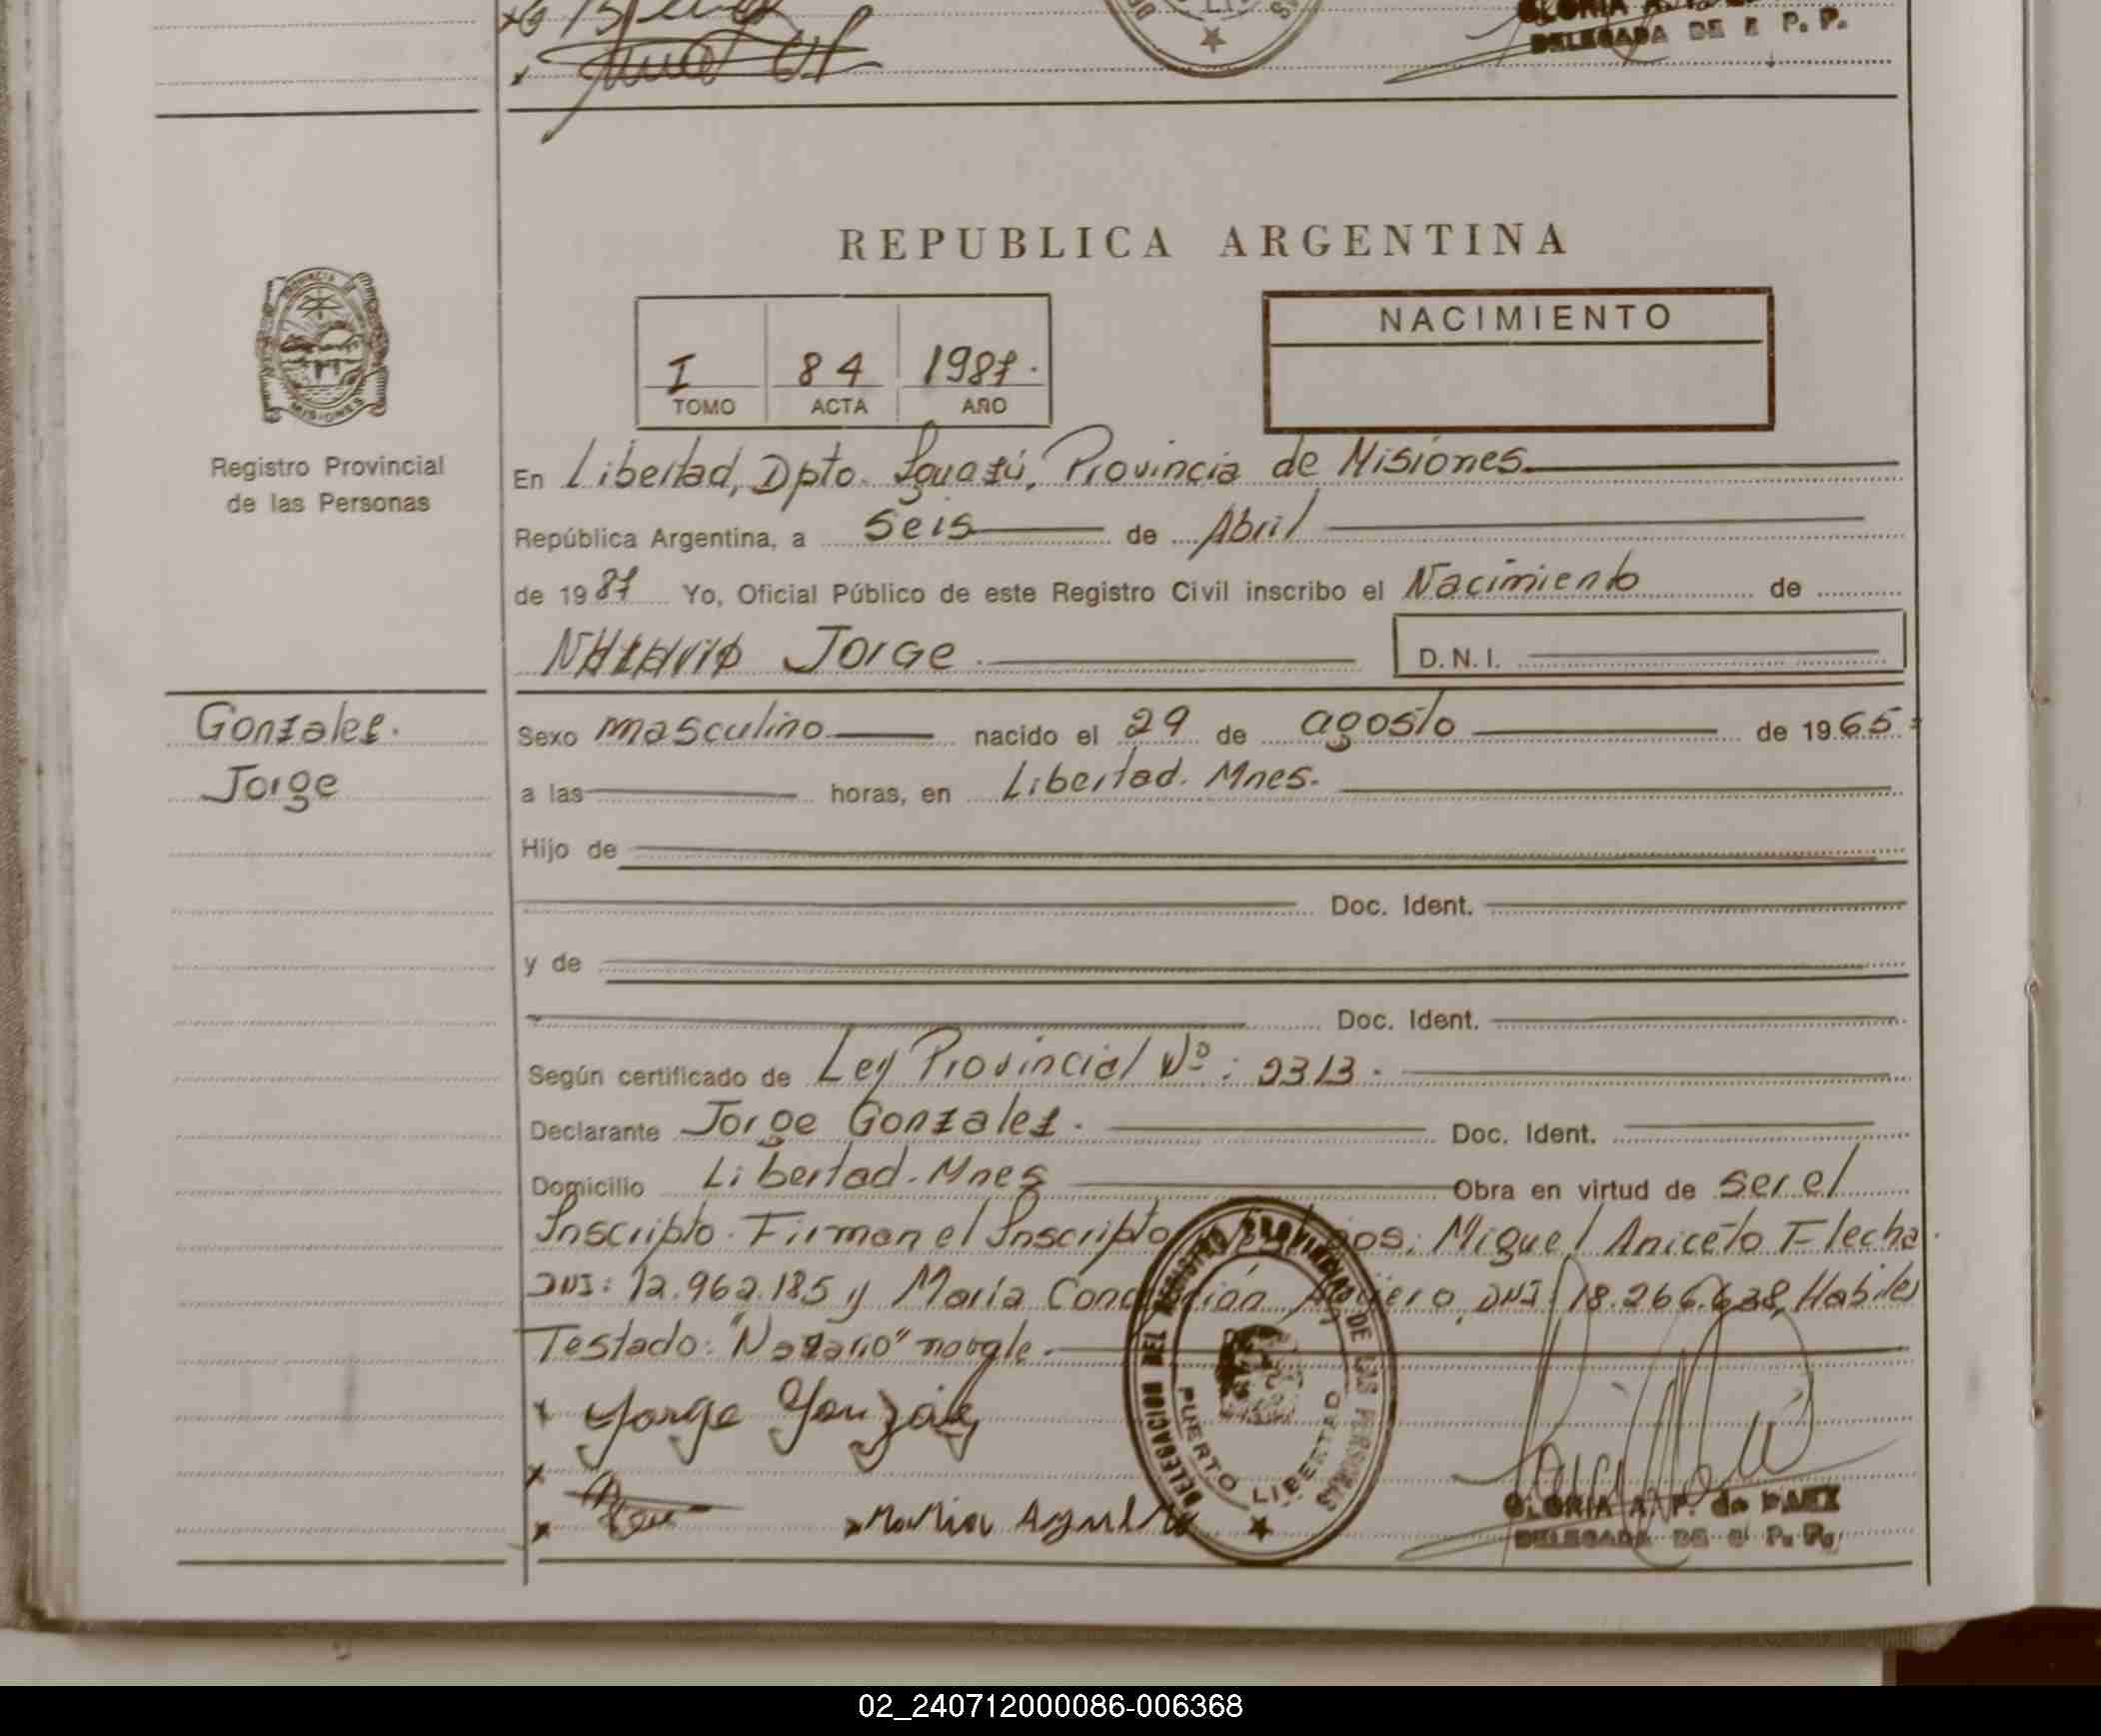 DELEGADA DE E P. P.
REPUBLICA ARGENTINA
NACIMIENTO
I 84 1987.
TOMO ACTA AÑO
Registro Provincial
de las Personas
En Libertad, Dpto. Iguazú, Provincia de Misiones
República Argentina, a seis de Abril
de 1987 Yo, Oficial Público de este Registro Civil inscribo el Nacimiento de
Nazario Jorge. D.N.I.
Gonzalez.
Jorge
Sexo masculino nacido el 29 de agosto de 1965.
a las horas, en Libertad. Mnes.
Hijo de
Doc. Ident.
y de
Doc. Ident.
Según certificado de Ley Provincial Nº: 2313.
Declarante Jorge Gonzalez. Doc. Ident.
Domicilio Libertad. Mnes Obra en virtud de ser el
Inscripto. Firman el Inscripto Miguel Aniceto Flecha
DNI: 12.962.185 y María DNI 18.266.638, Habiles
Testado: "Nazario" no vale.
x Jorge Gonzalez
x
x x Maria
DELEGACION DEL REGISTRO PROVINCIAL DE LAS PERSONAS
PUERTO LIBERTAD
GLORIA A. P. de PAEZ
DELEGADA DE E P. P.
02_240712000086-006368